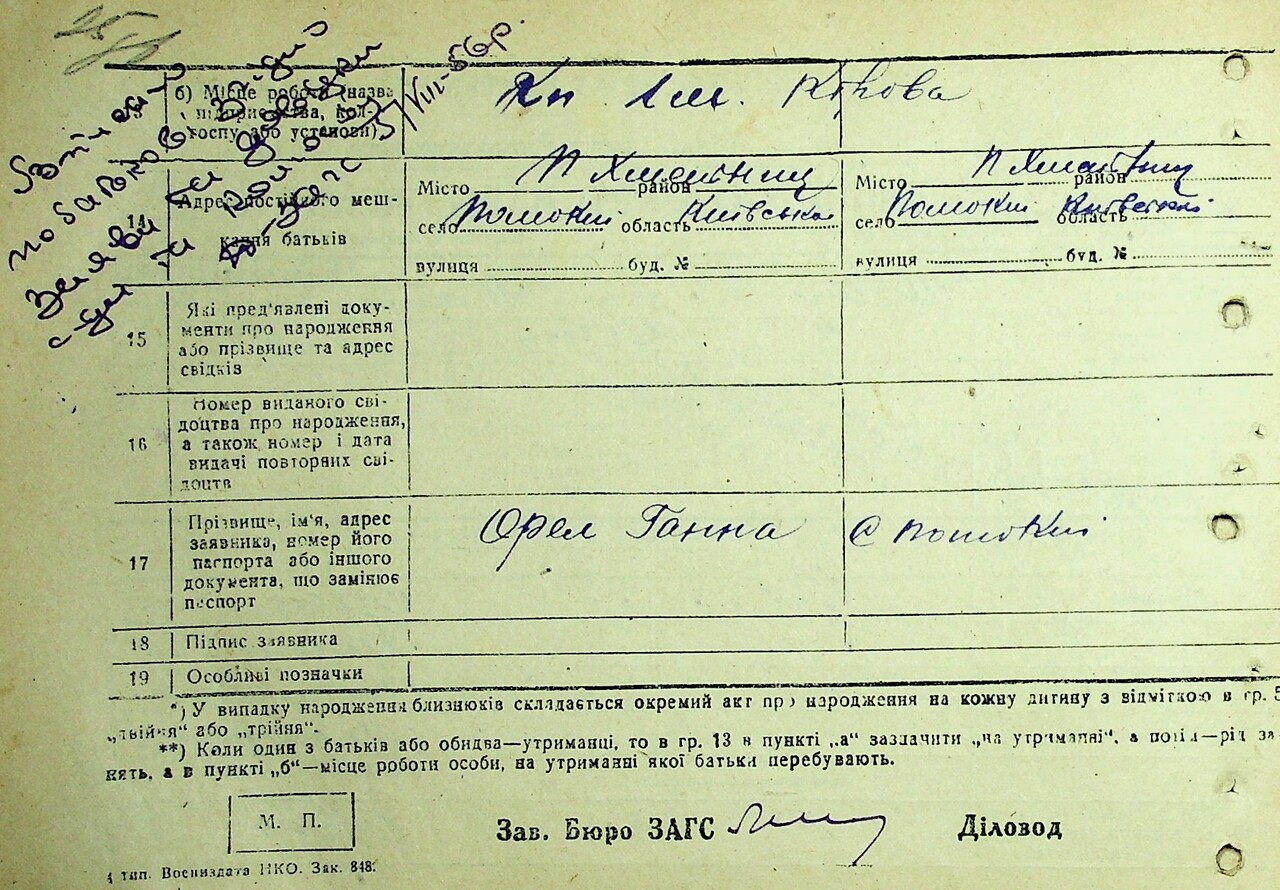 б) Місце роботи (назва
підприємства, кол-
госпу або установи)
Кірова
14
Адрес постійного меш-
кання батьків
Місто П Хмельниц район
село Потокі область Київська
вулиця буд. №
Місто П Хмельниц район
село Потокі область
вулиця буд. №
15
Які пред'явлені доку-
менти про народження
або прізвище та адрес
свідків
16
Номер виданого сві-
доцтва про народження,
а також номер і дата
видачі повторних сві-
доцтв
17
Прізвище, ім'я, адрес
заявника, номер його
паспорта або іншого
документа, що замінює
паспорт
Орел Ганна
с Потокі
18 Підпис заявника
19 Особливі позначки
*) У випадку народження близнюків складається окремий акт про народження на кожну дитину з відміткою в гр. 5
„двійня" або „трійня".
**) Коли один з батьків або обидва—утриманці, то в гр. 13 в пункті „а" зазначити „на утриманні", а поніл—рід за-
нять, а в пункті „б"—місце роботи особи, на утриманні якої батьки перебувають.
М. П.
Зав. Бюро ЗАГС
Діловод
4 тип. Воениздата НКО. Зак. 848.
VIII-56р.